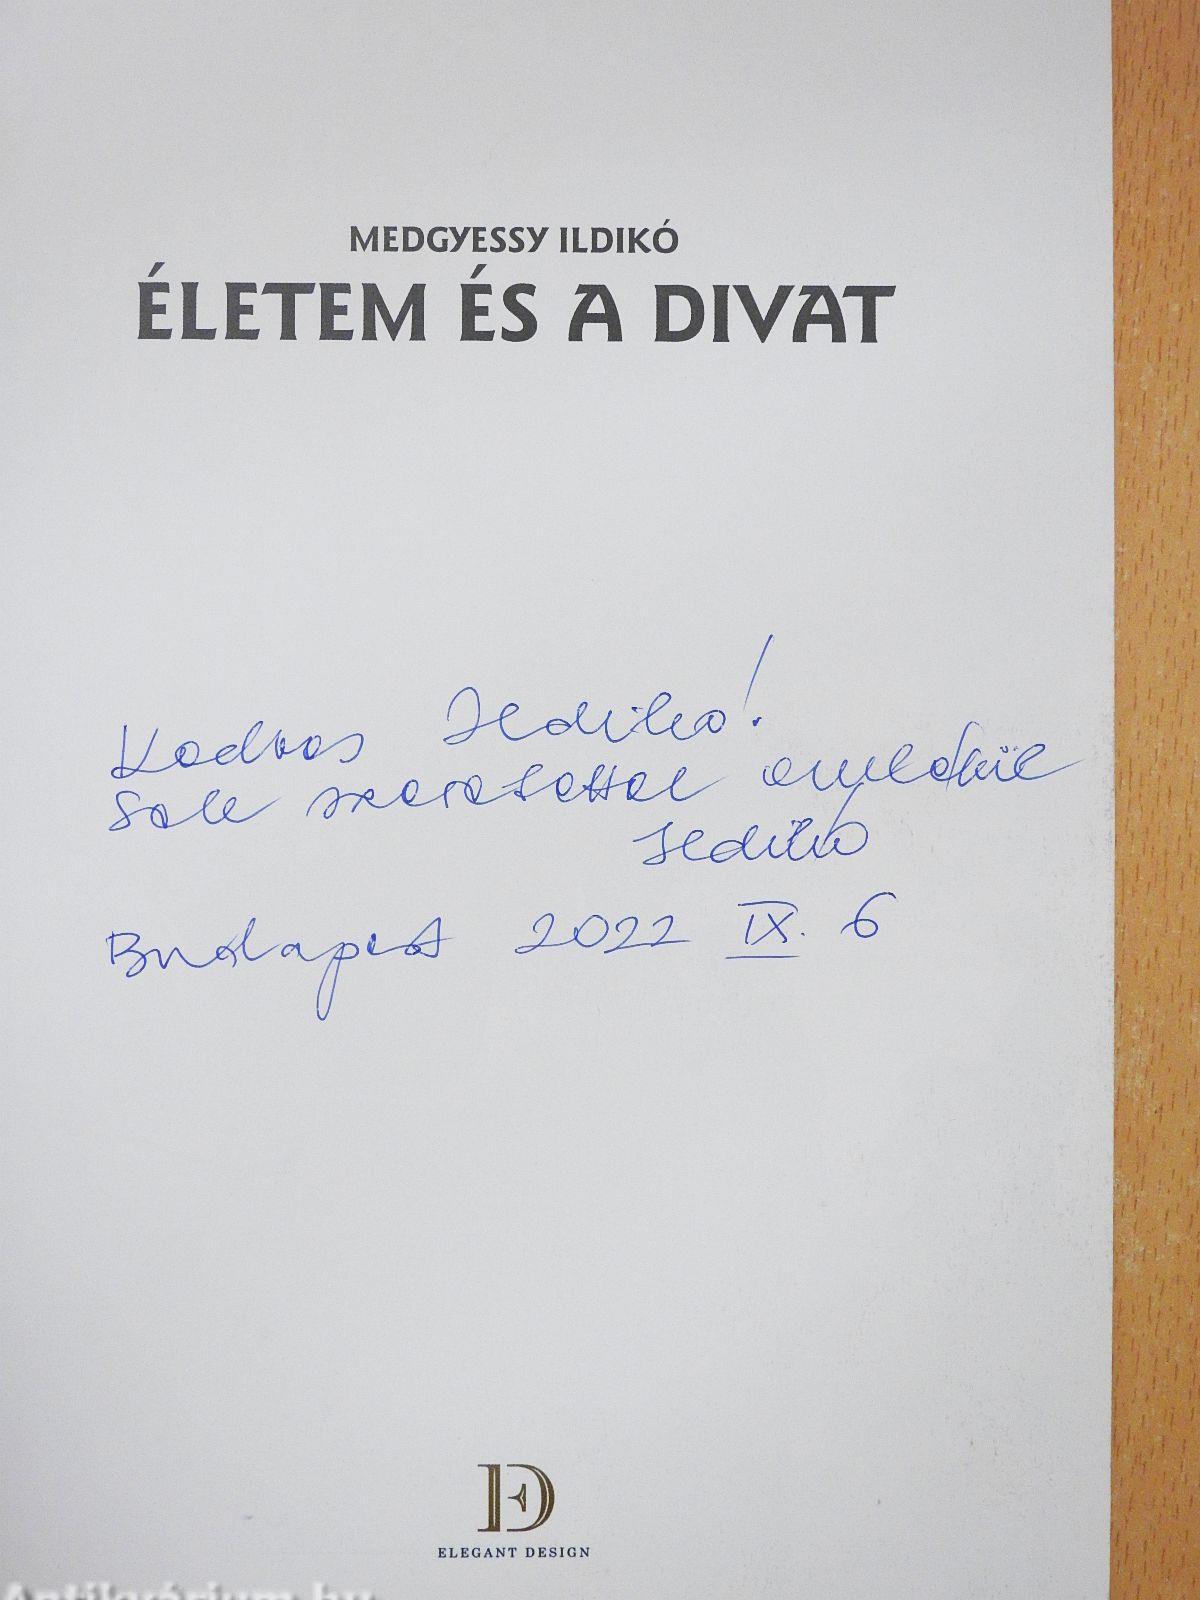 MEDGYESSY ILDIKÓ
ÉLETEM ÉS A DIVAT
Kedves Ildikó!
Sok szeretettel emlékül
Ildikó
Budapest 2022 IX. 6
ED
ELEGANT DESIGN
Antikvárium.hu